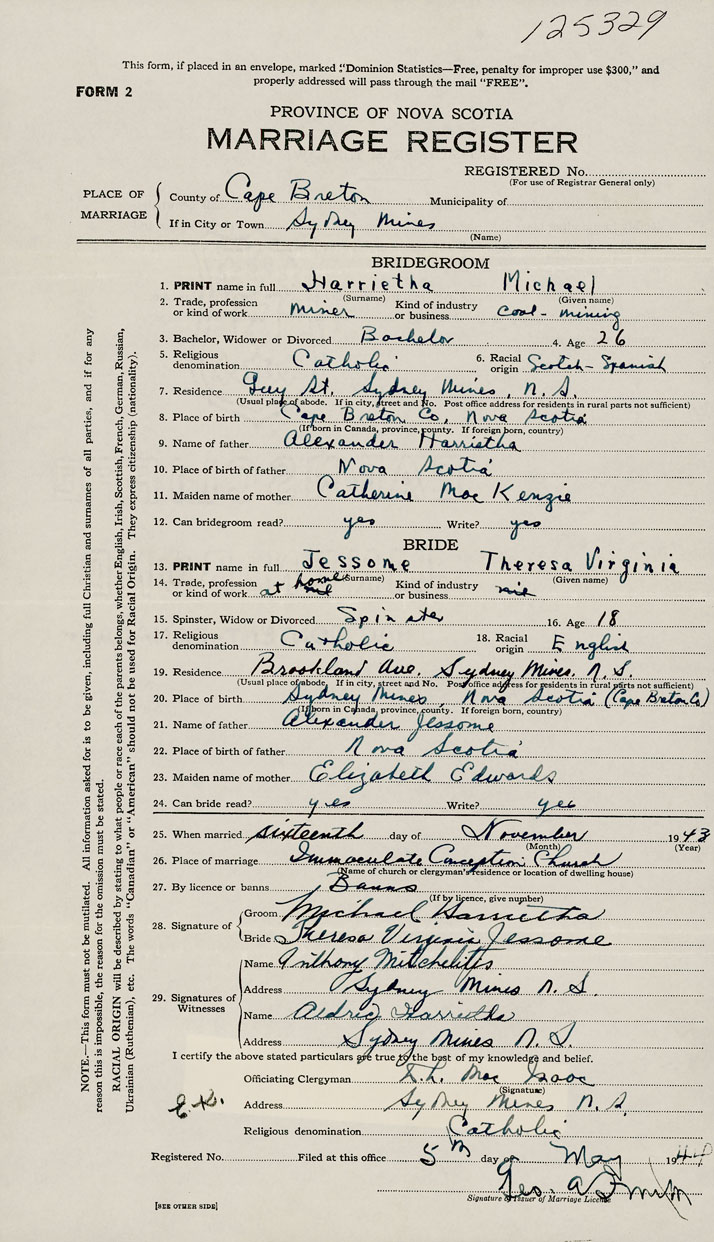 125329
This form, if placed in an envelope, marked "Dominion Statistics—Free, penalty for improper use $300," and
properly addressed will pass through the mail "FREE".
FORM 2
PROVINCE OF NOVA SCOTIA
MARRIAGE REGISTER
REGISTERED No.
(For use of Registrar General only)
PLACE OF MARRIAGE
County of Cape Breton Municipality of
If in City or Town Sydney Mines
(Name)
BRIDEGROOM
1. PRINT name in full Harrietha Michael
(Surname) (Given name)
2. Trade, profession or kind of work miner Kind of industry or business coal - mining
3. Bachelor, Widower or Divorced Bachelor 4. Age 26
5. Religious denomination Catholic 6. Racial origin Scotch - Spanish
7. Residence Guy St. Sydney Mines, N. S.
(Usual place of abode. If in city, street and No. Post office address for residents in rural parts not sufficient)
8. Place of birth Cape Breton Co, Nova Scotia
(If born in Canada, province, county. If foreign born, country)
9. Name of father Alexander Harrietha
10. Place of birth of father Nova Scotia
11. Maiden name of mother Catherine Mac Kenzie
12. Can bridegroom read? yes Write? yes
BRIDE
13. PRINT name in full Jessome Theresa Virginia
(Surname) (Given name)
14. Trade, profession or kind of work at home Kind of industry or business
15. Spinster, Widow or Divorced Spinster 16. Age 18
17. Religious denomination Catholic 18. Racial origin English
19. Residence Brookland Ave. Sydney Mines, N. S.
(Usual place of abode. If in city, street and No. Post office address for residents in rural parts not sufficient)
20. Place of birth Sydney Mines, Nova Scotia (Cape Breton Co)
(If born in Canada, province, county. If foreign born, country)
21. Name of father Alexander Jessome
22. Place of birth of father Nova Scotia
23. Maiden name of mother Elizabeth Edwards
24. Can bride read? yes Write? yes
25. When married sixteenth day of November 1943
(Month) (Year)
26. Place of marriage Immaculate Conception Church
(Name of church or clergyman's residence or location of dwelling house)
27. By licence or banns Banns
(If by licence, give number)
28. Signature of
Groom Michael Harrietha
Bride Theresa Virginia Jessome
29. Signatures of Witnesses
Name Anthony
Address Sydney Mines N. S.
Name Aldric Harrietha
Address Sydney Mines N. S.
I certify the above stated particulars are true to the best of my knowledge and belief.
Officiating Clergyman Mac Isaac
(Signature)
Address Sydney Mines N. S.
Religious denomination Catholic
Registered No. Filed at this office 5th day of May 1944
Geo. A
Signature of Issuer of Marriage License
[SEE OTHER SIDE]
NOTE.—This form must not be mutilated. All information asked for is to be given, including full Christian and surnames of all parties, and if for any
reason this is impossible, the reason for the omission must be stated.
RACIAL ORIGIN will be described by stating to what people or race each of the parents belongs, whether English, Irish, Scottish, French, German, Russian,
Ukrainian (Ruthenian), etc. The words "Canadian" or "American" should not be used for Racial Origin. They express citizenship (nationality).